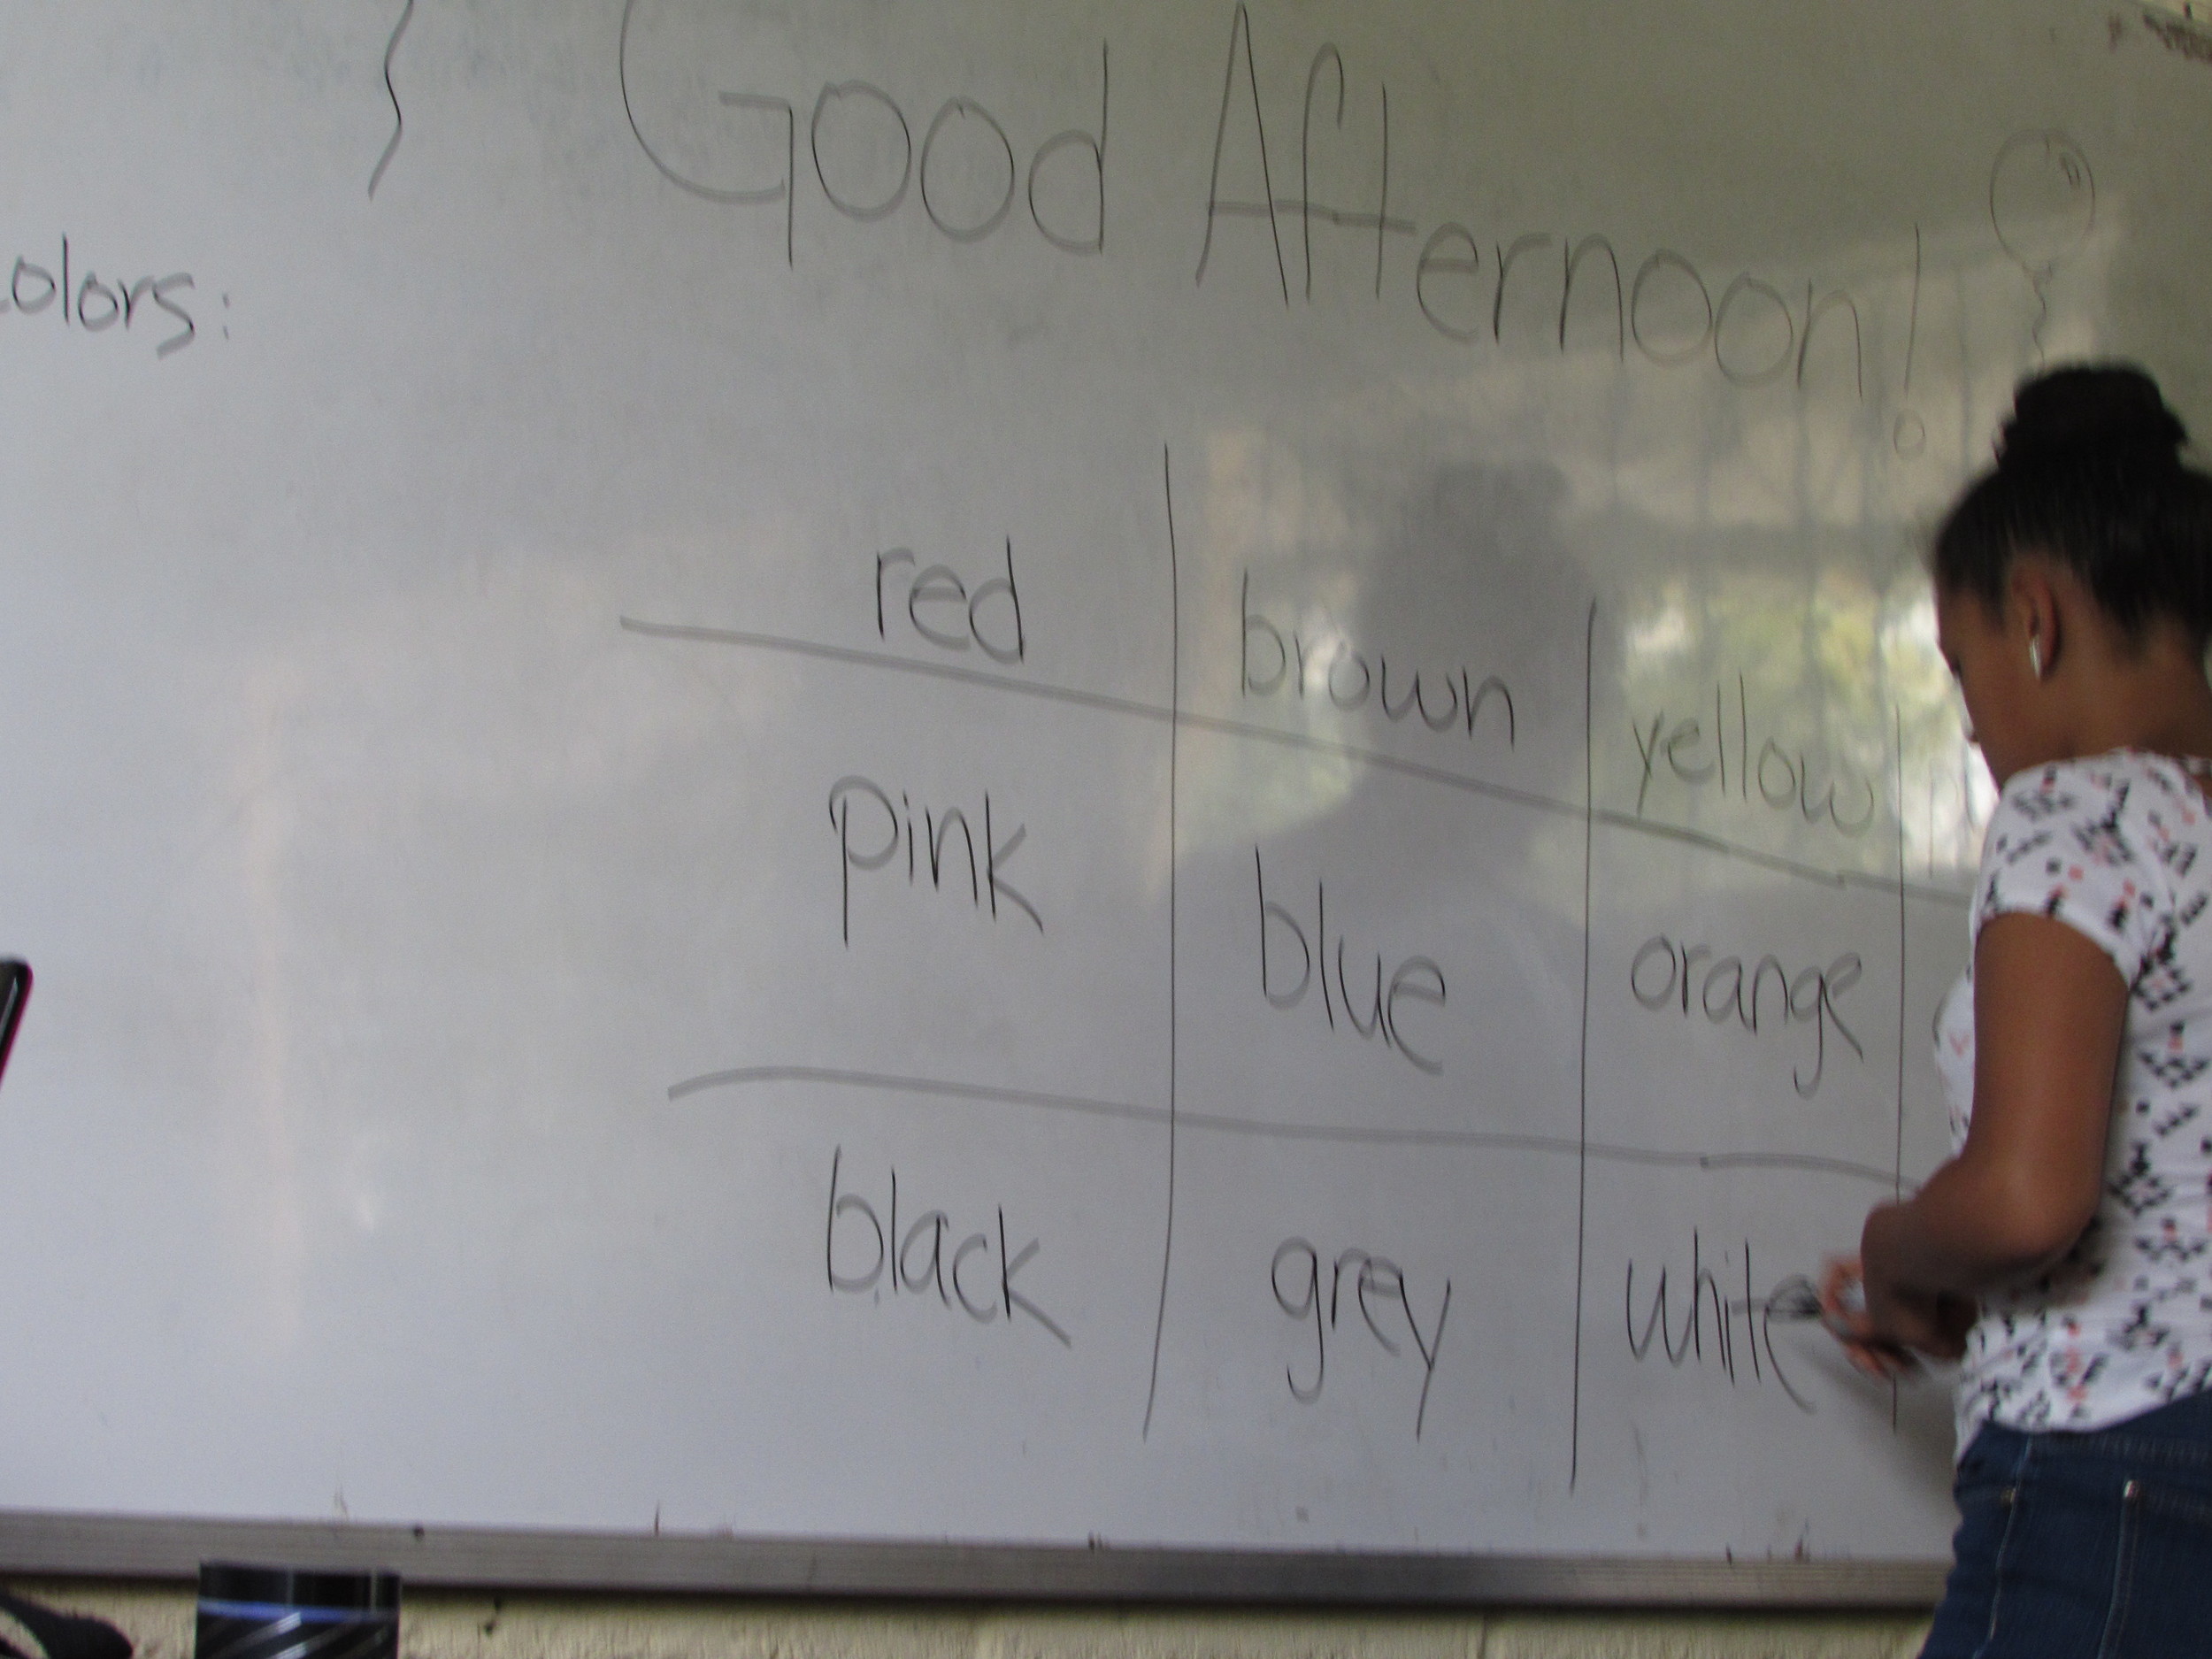 Good Afternoon!
colors:
red brown yellow
pink blue orange
black grey white